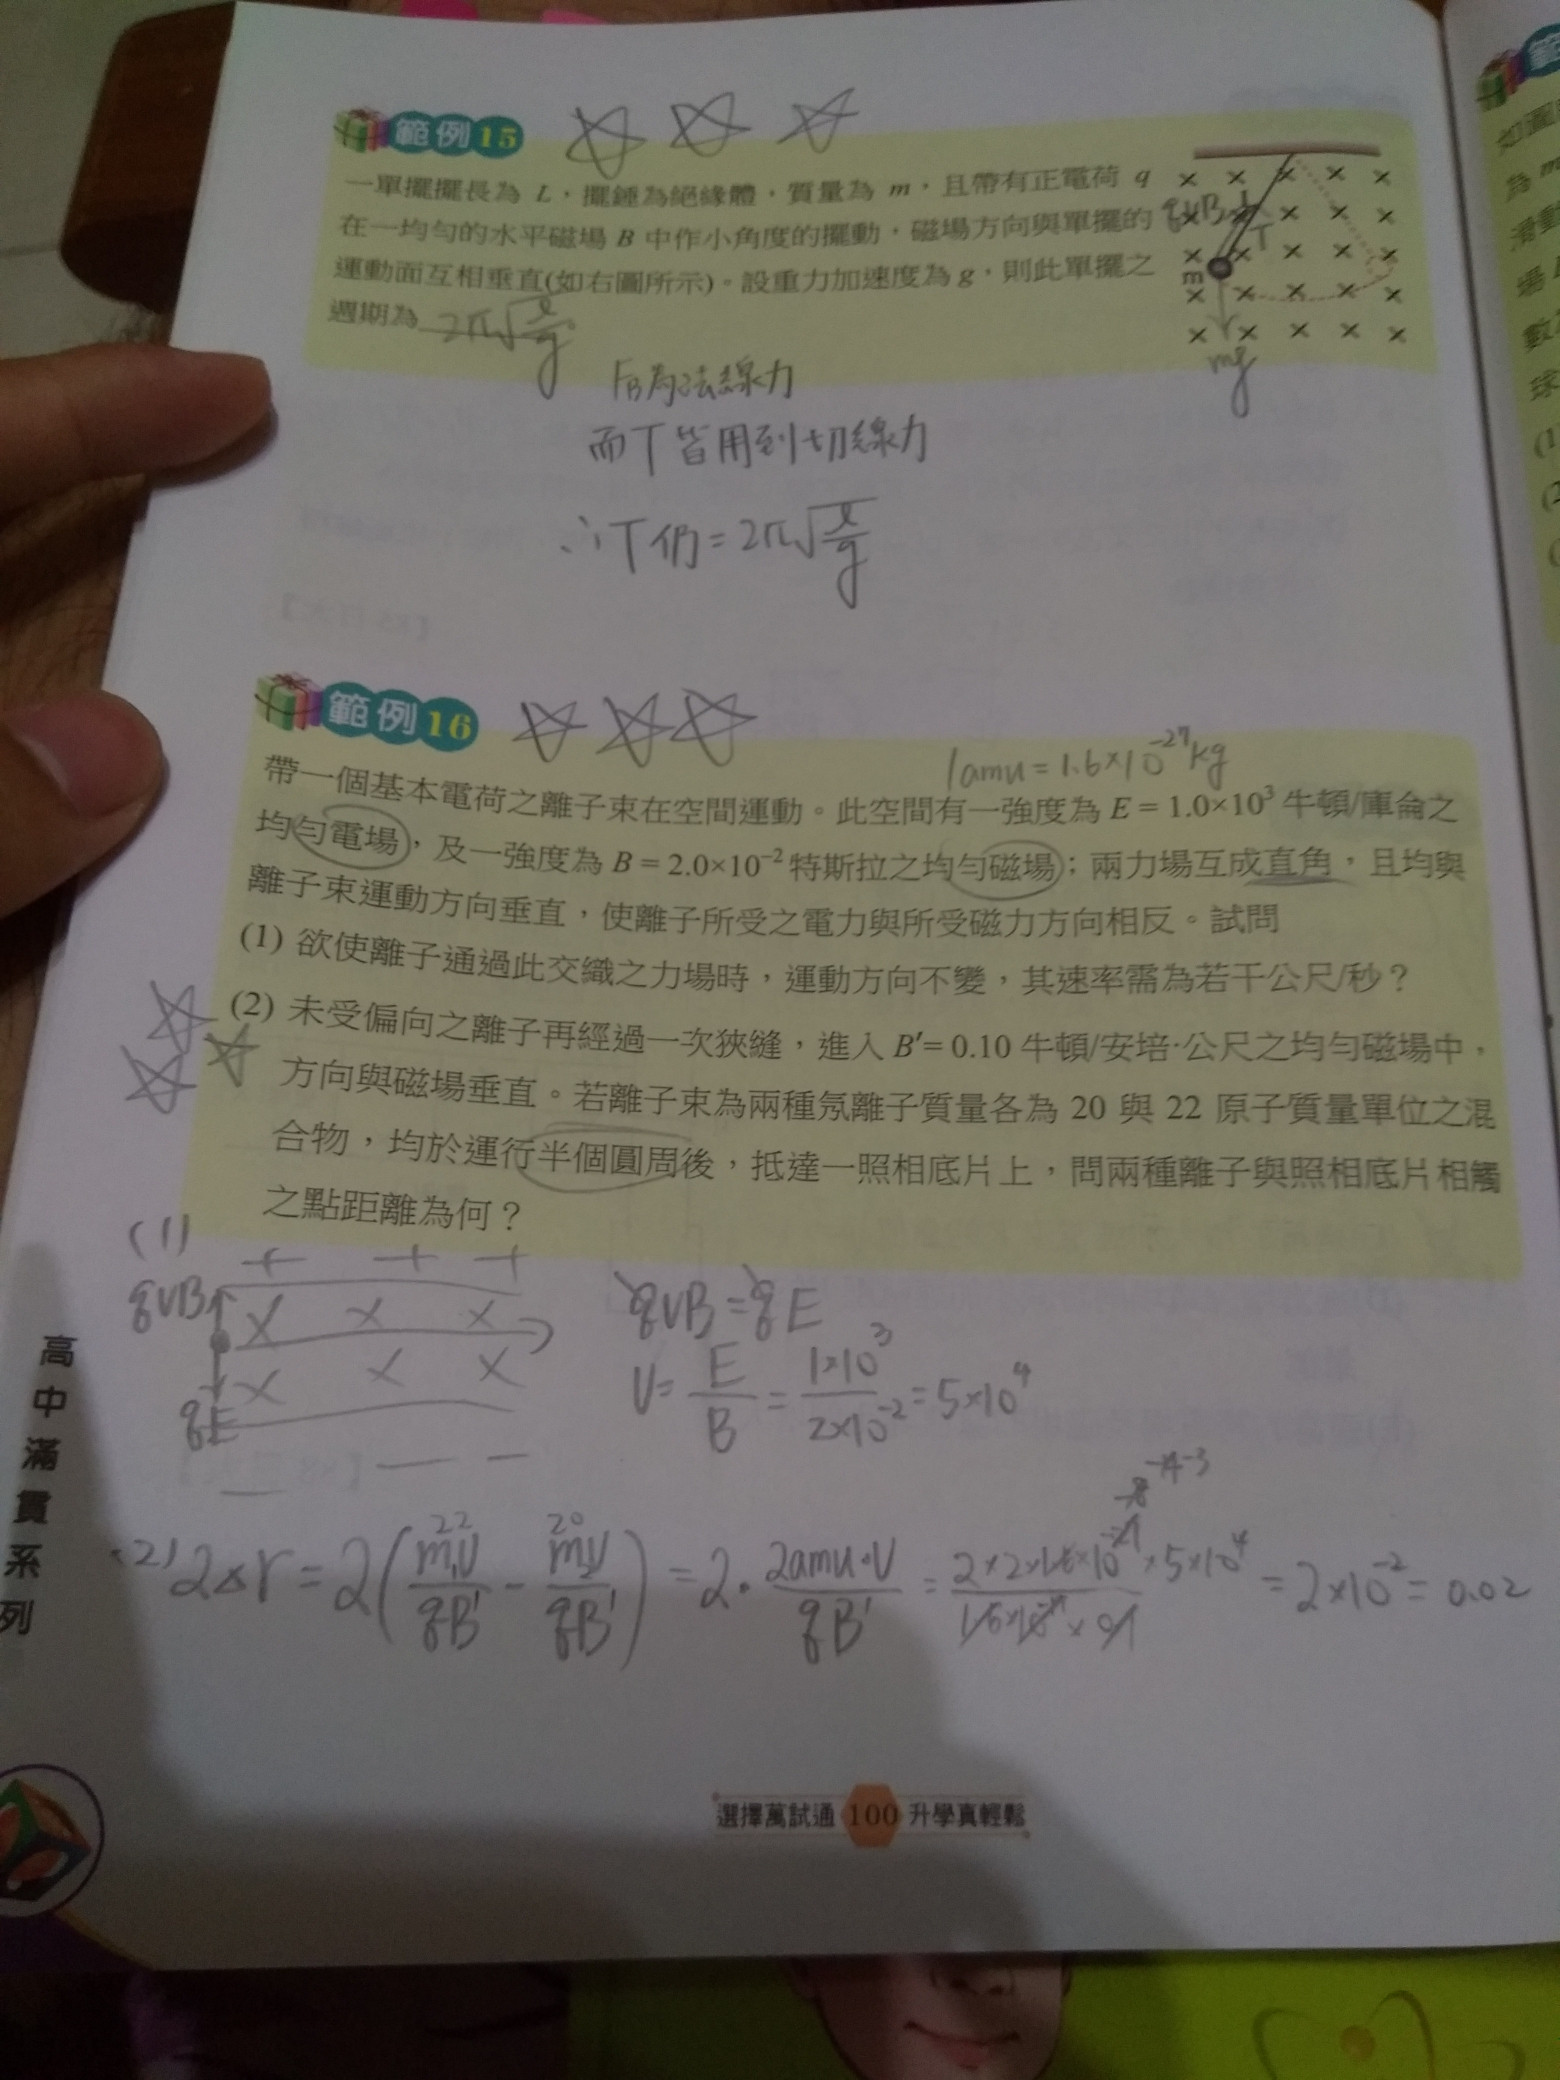 範例15
一單擺擺長為 L，擺錘為絕緣體，質量為 m，且帶有正電荷 q
在一均勻的水平磁場 B 中作小角度的擺動，磁場方向與單擺的
運動面互相垂直(如右圖所示)。設重力加速度為 g，則此單擺之
週期為 2π√(ℓ/g)。
qvB
T
m
mg
F_B為法線力
而T皆用到切線力
∴T仍=2π√(ℓ/g)
範例16
1amu=1.6×10⁻²⁷kg
帶一個基本電荷之離子束在空間運動。此空間有一強度為 E = 1.0×10³ 牛頓/庫侖之
均勻電場，及一強度為 B = 2.0×10⁻² 特斯拉之均勻磁場；兩力場互成直角，且均與
離子束運動方向垂直，使離子所受之電力與所受磁力方向相反。試問
(1) 欲使離子通過此交織之力場時，運動方向不變，其速率需為若干公尺/秒？
(2) 未受偏向之離子再經過一次狹縫，進入 B′= 0.10 牛頓/安培·公尺之均勻磁場中，
方向與磁場垂直。若離子束為兩種氖離子質量各為 20 與 22 原子質量單位之混
合物，均於運行半個圓周後，抵達一照相底片上，問兩種離子與照相底片相觸
之點距離為何？
(1)
qvB
qE
qvB=qE
V=E/B=1×10³/2×10⁻²=5×10⁴
(2) 2Δr=2(m₁V/qB′-m₂V/qB′)=2·2amu·V/qB′=2×2×1.6×10⁻²⁷×5×10⁴/1.6×10⁻¹⁹×0.1=2×10⁻²=0.02
22
20
高中滿貫系列
選擇萬試通 100 升學真輕鬆